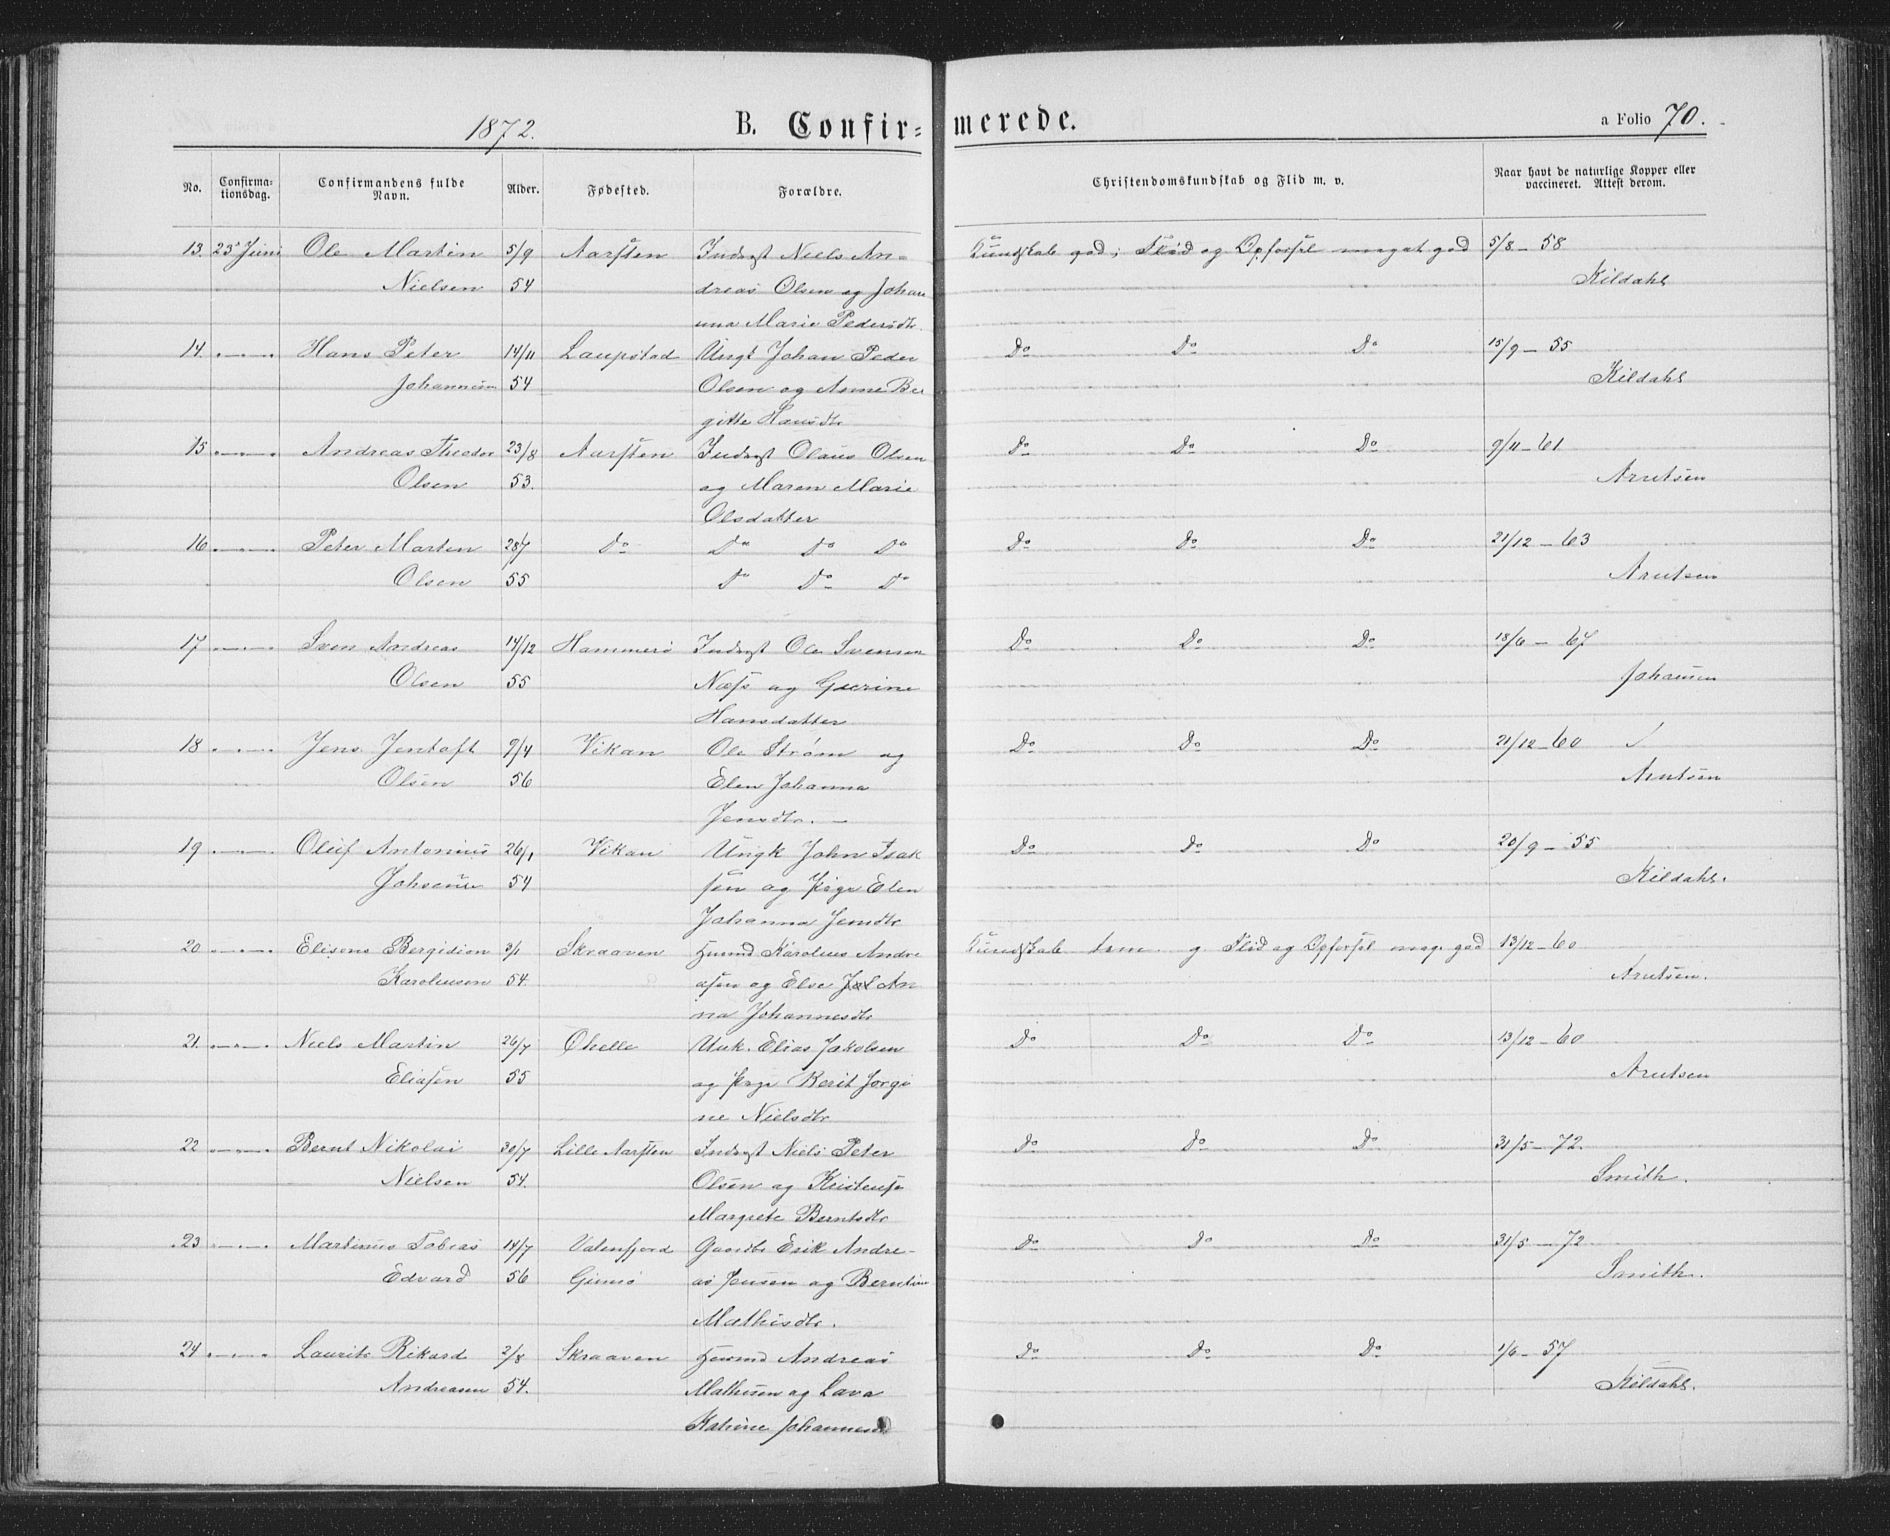 1872. B. Confir= merede. a Folio 70.
No. Confirma= tionsdag. Confirmandens fulde Navn. Alder. Fødested. Forældre. Christendomskundskab og Flid m. v. Naar havt de naturlige Kopper eller vaccineret. Attest derom.
13. 23 Juni Ole Martin 5/9 Aarsten Inderst Niels An= Kundskab god; Flid og Opførsel meget god 5/8 - 58
Nielsen 54 dreas Olsen og Johan Kildahl
na Marie Pedersdtr.
14. Hans Peter 14/11 Laupstad Ungk Johan Peder Do Do Do 15/9 - 55
Johannesen 54 Olsen og Anne Ber Kildahl
gitte Hansdtr
15 Andreas Theodor 23/8 Aarsten Inderst Olaus Olsen Do Do Do 9/11 - 61
Olsen 53. og Maren Marie Arntsen
Olsdatter
16 Peter Martin 28/7 Do Do Do Do Do Do Do 21/12 - 63
Olsen 55 Do Do Do Arntsen
17 Sven Andreas 14/12 Hammerø Inderst Ole Svensen Do Do Do 18/6 - 67
Olsen 55 Næss og Hansen
Hansdatter
18 Jens Jentoft 9/4 Vikan Ole Strøm og Do Do Do 21/12 - 60
Olsen 56 Elen Johanna Arntsen
Jensdtr.
19 Oluf Antonius 26/1 Vikan Ungk John Isak Do Do Do 20/9 - 55
Johnsen 54 sen og Pige Elen Kildahl.
Johanna Jensdtr
20 Bergidion 3/1 Skraaven Huusmd Karolius Andre Kundskab tem. g. Flid og Opførsel meg. god 13/12 - 60
Karoliusen 54. asen og Else An Arntsen.
na Johannesdtr
21. Niels Martin 26/7 Ohelle Unk. Elias Jakobsen Do Do Do 13/12 - 60
Eliasen 55 og Pige Berit Jørgi Arntsen
ne Nielsdtr
22 Bernt Nikolai 30/7 Lille Aarsten Inderst Niels Peter Do Do Do 31/5 - 72.
Nielsen 54. Olsen og Kristense Smith.
Margrete Berntsdtr
23 Martinus Tobias 14/7 Vatenfjord Gaardbr Erik Andre- Do Do Do 31/5 - 72
Edvard 56 Gimsø as Jensen og Berntine Smith.
Mathisdtr.
24 Laurits Rikard 2/8 Skraaven Huusmd Andreas Do Do Do 1/6 - 57
Andreasen 54. Mathisen og Lava Kildahl.
Katrine Johannesdtr